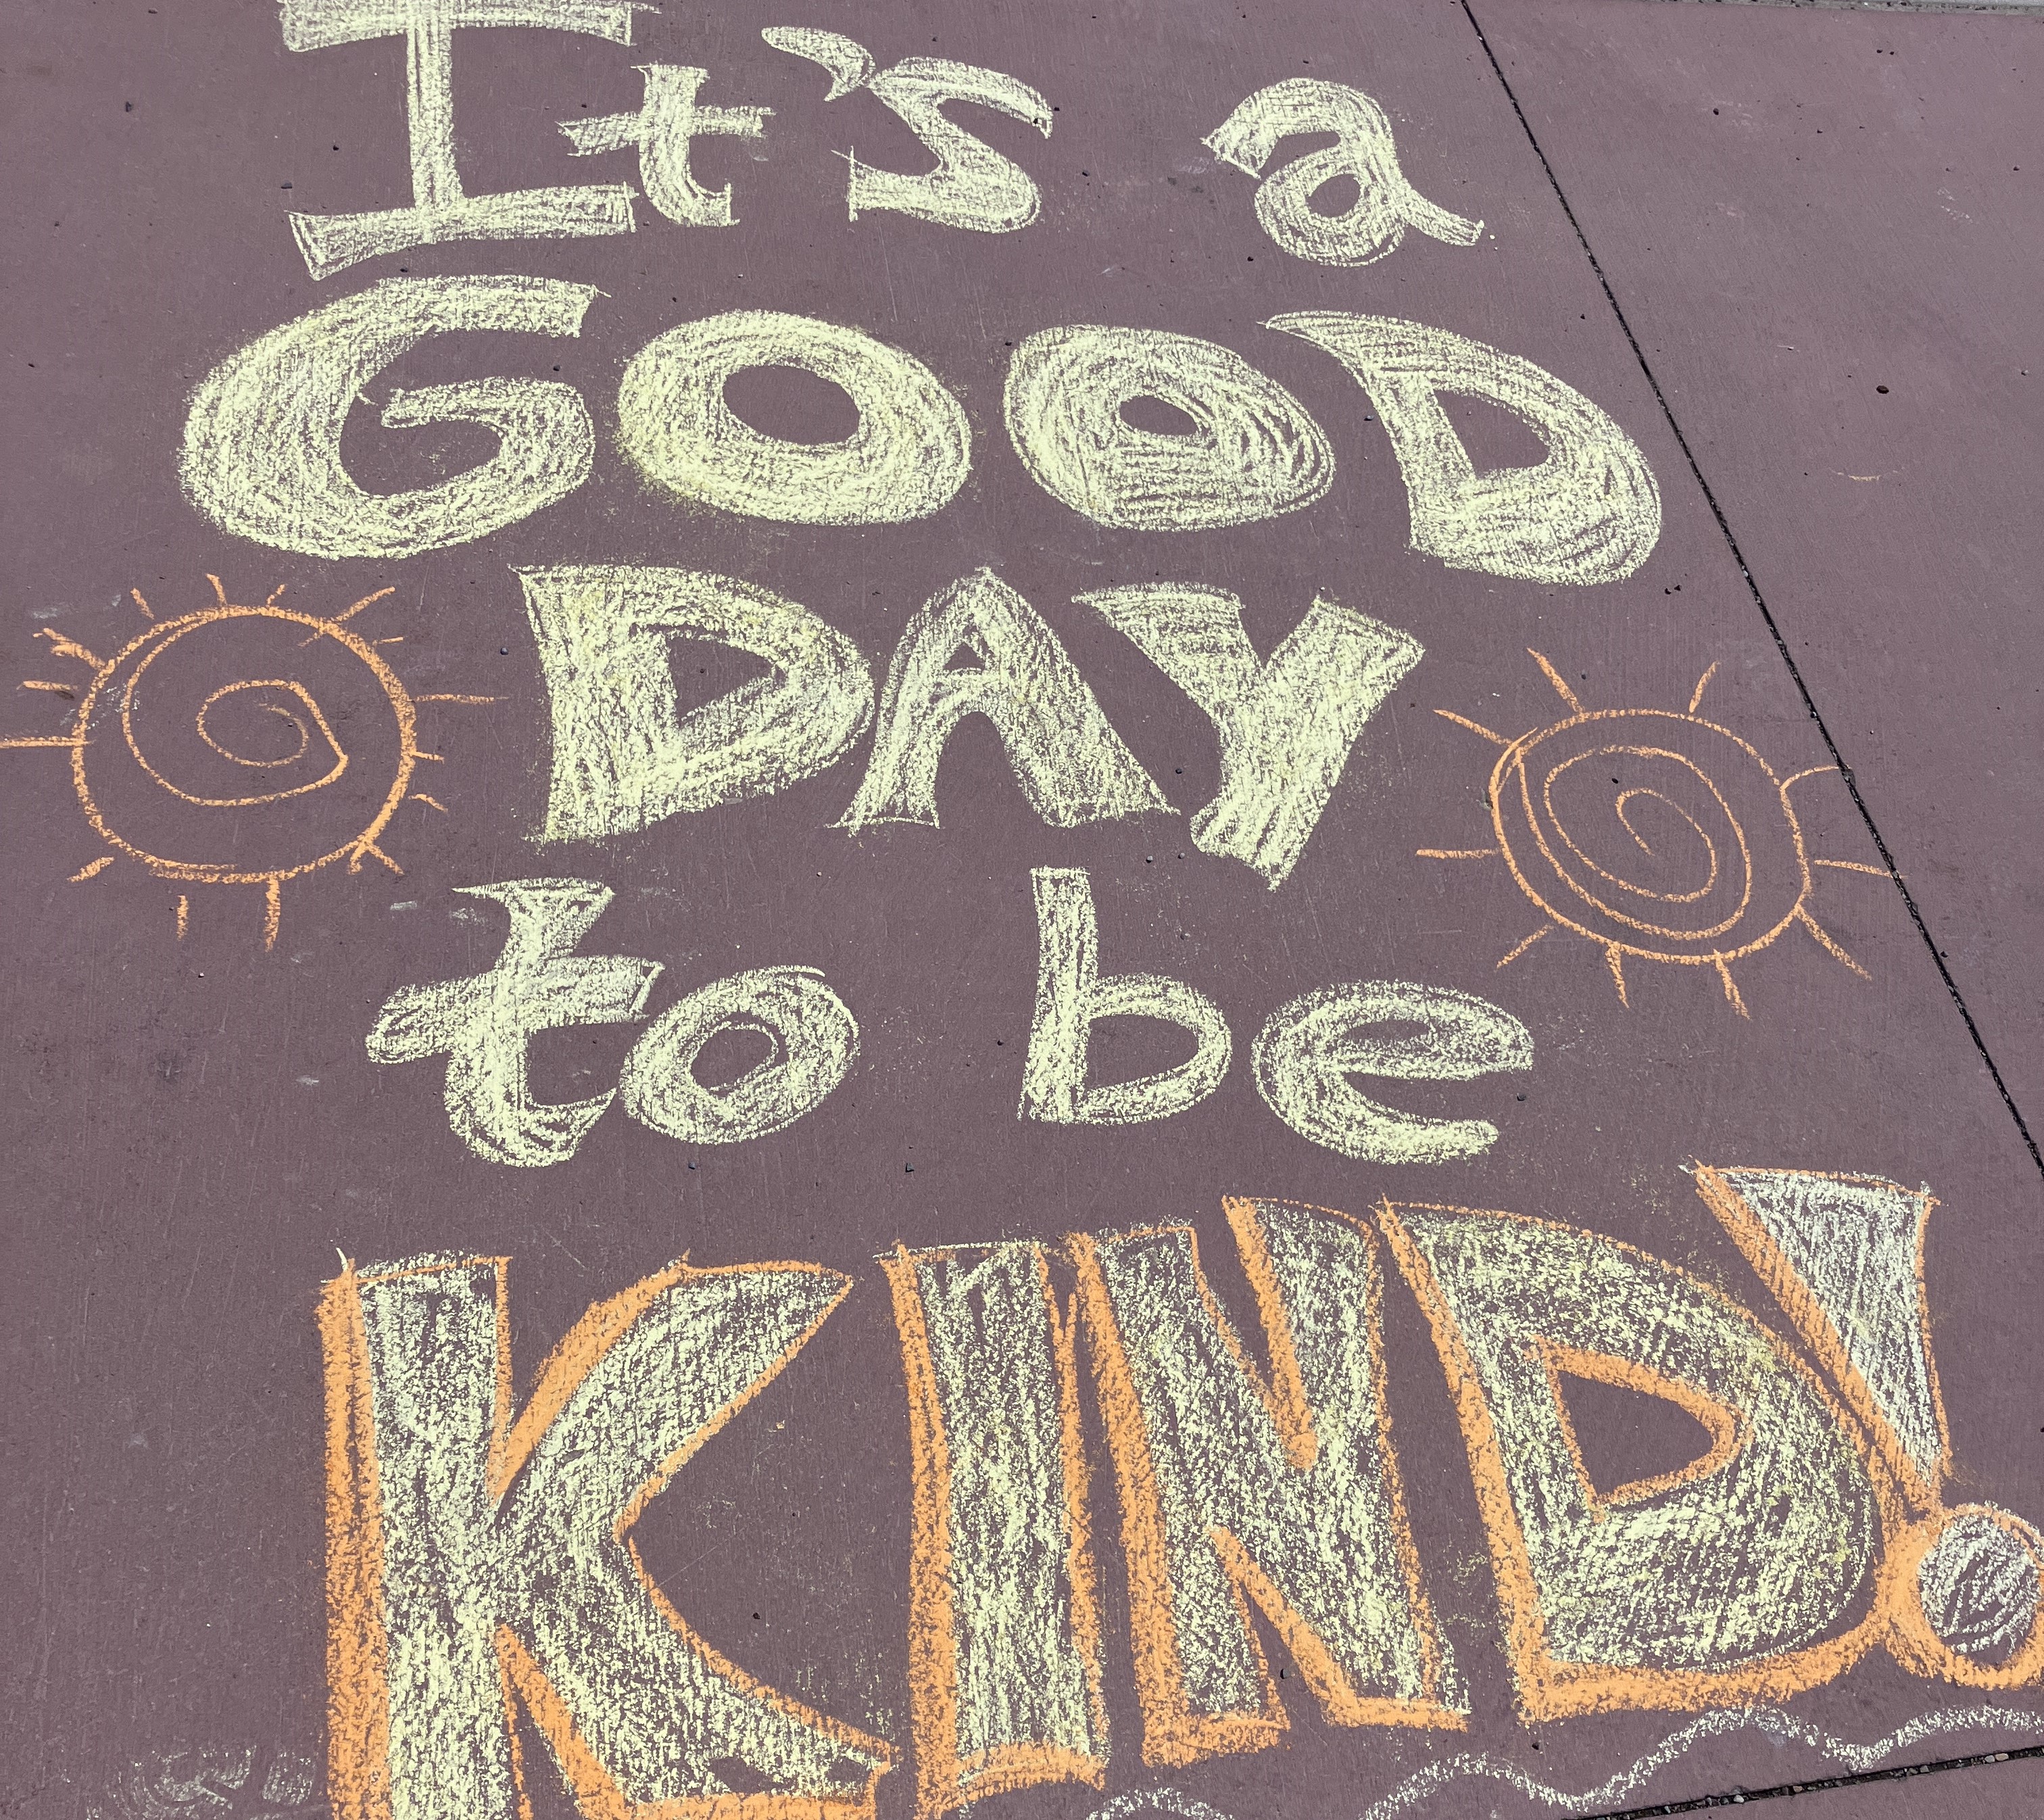 It's a
GOOD
DAY
to be
KIND!